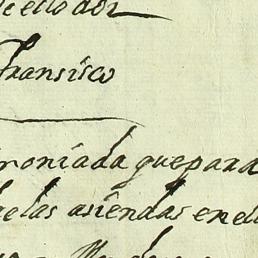 de ello dor
Fransisco
roniada que para
de las asiendas en el